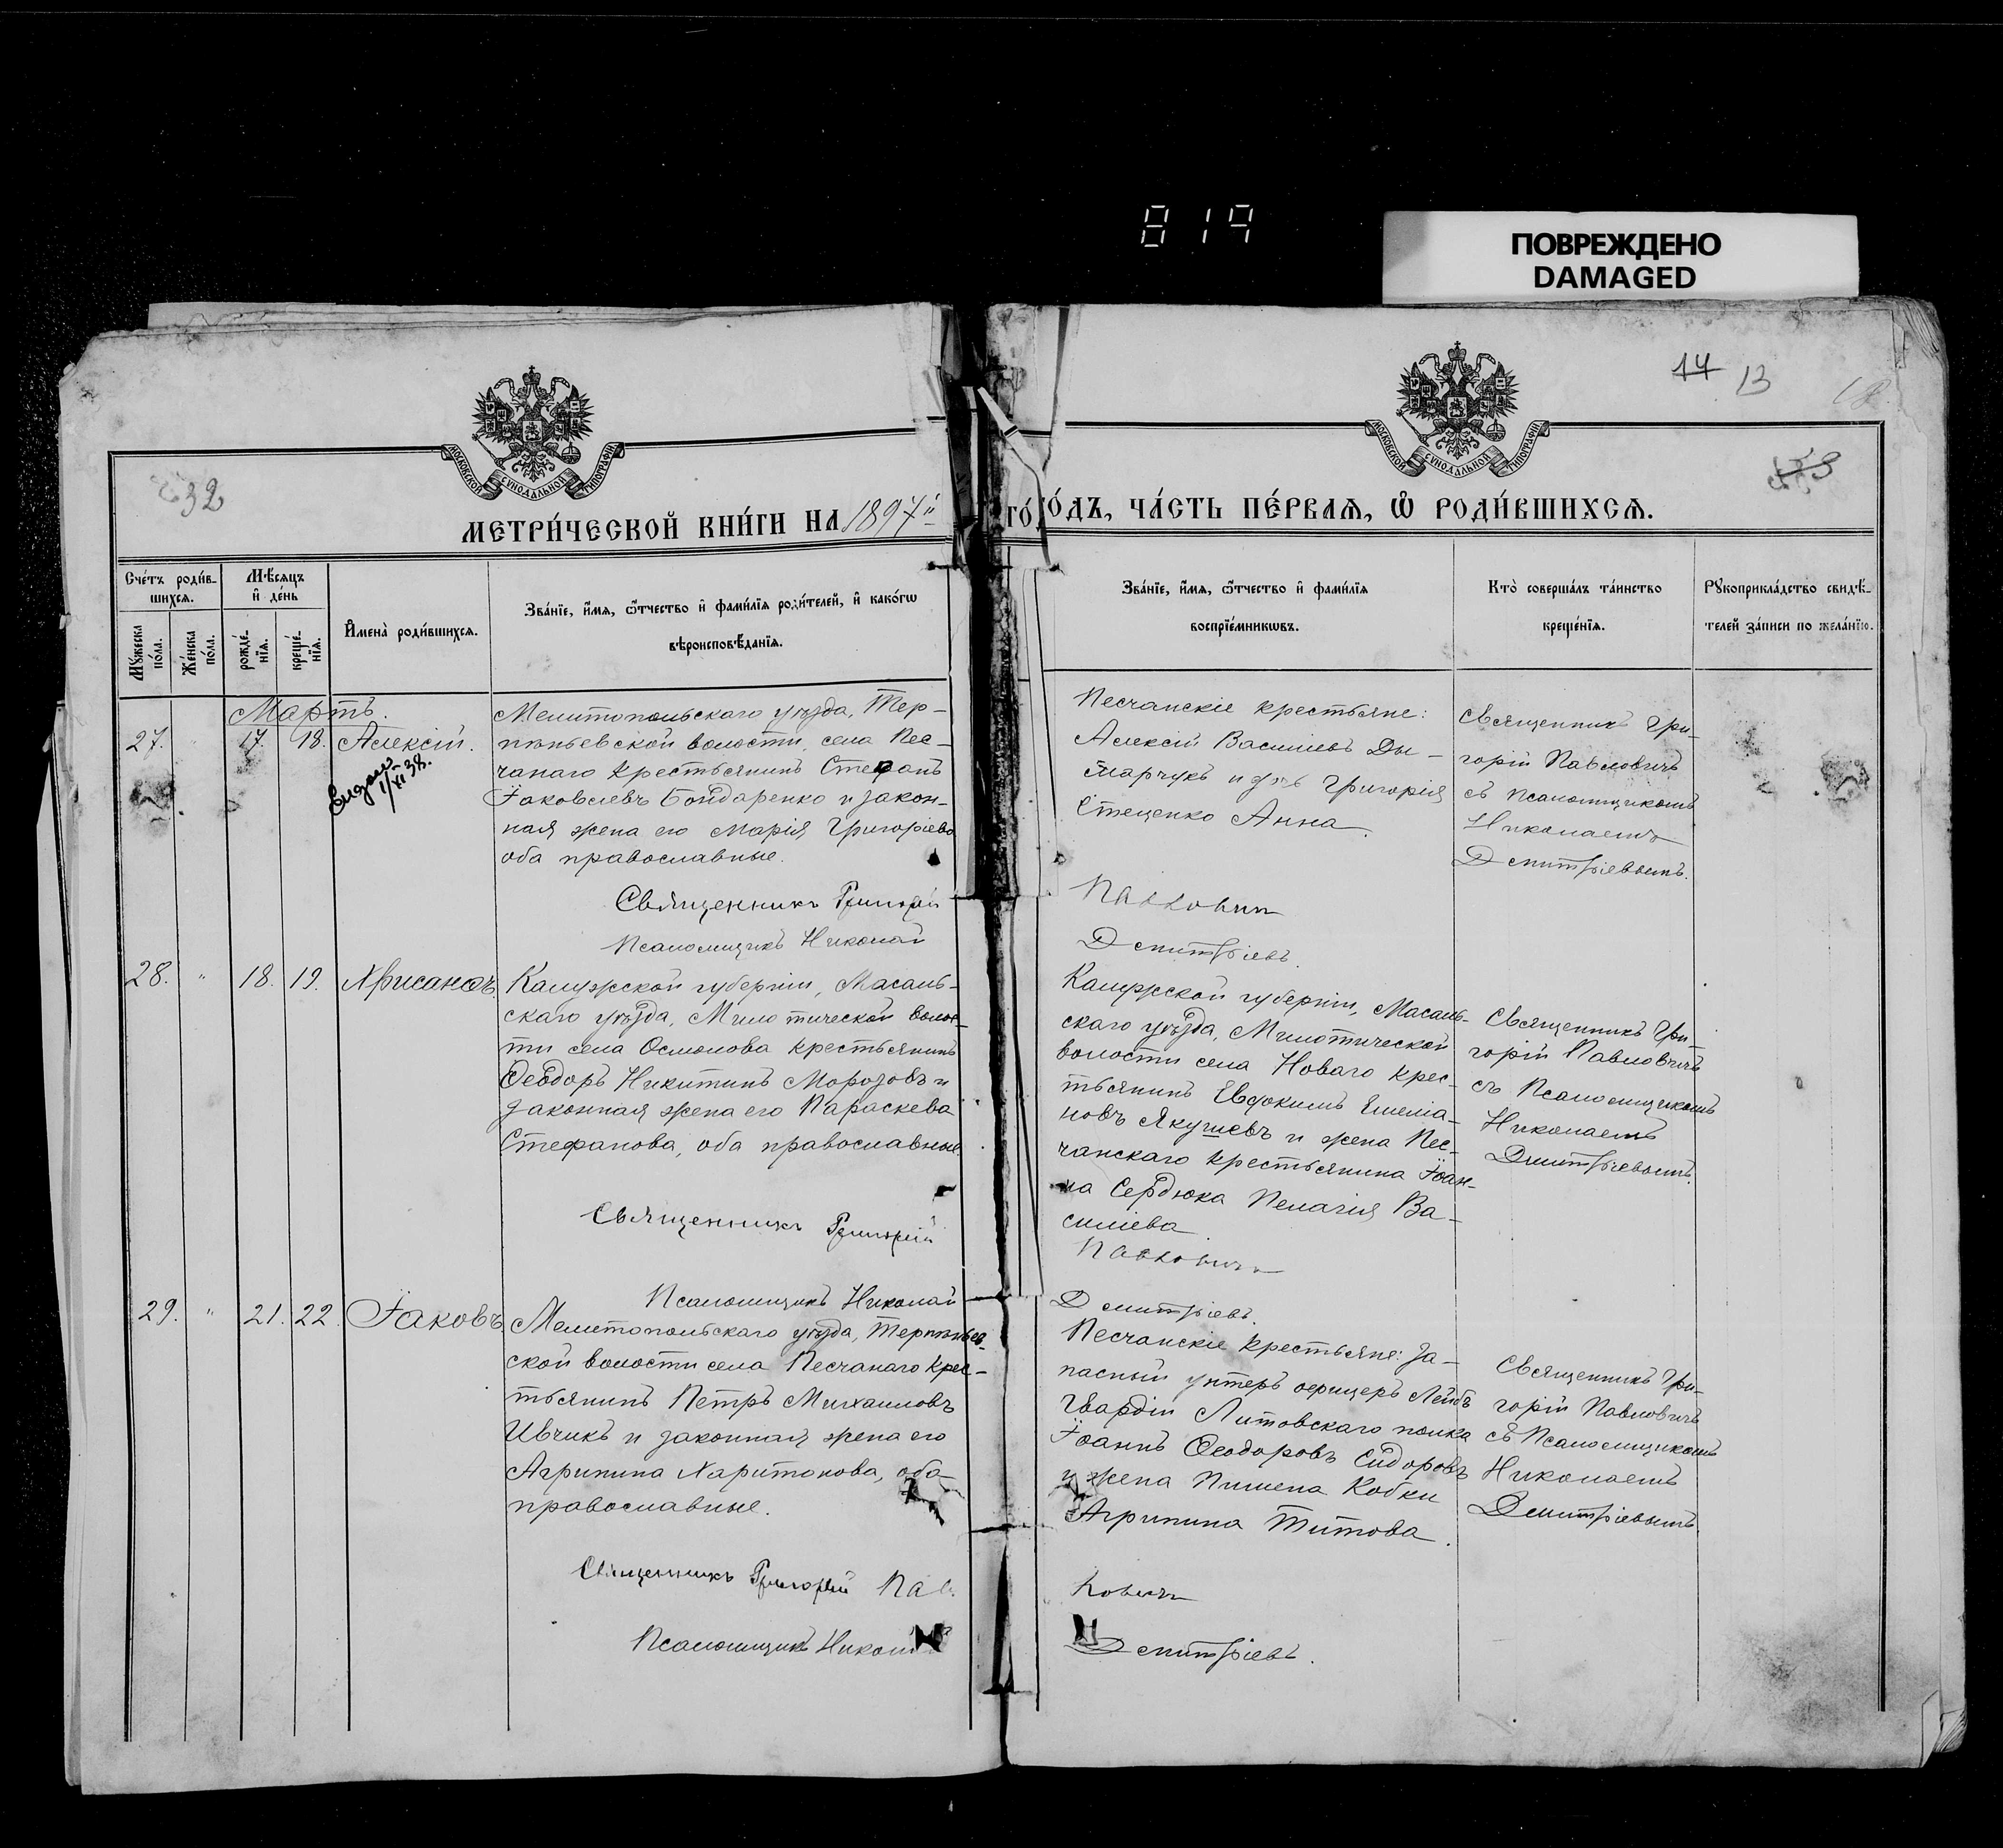 819
ПОВРЕЖДЕНО
DAMAGED
14 13
32
МОСКОВСКОЙ СѴНОДАЛЬНОЙ ТИПОГРАФІИ
МОСКОВСКОЙ СѴНОДАЛЬНОЙ ТИПОГРАФІИ
МЕТРИ́ЧЕСКОЙ КНИ́ГИ НА 1897й
ГО́ДЪ, ЧА́СТЬ ПЕ́РВАЯ, Ѡ҆ РОДИ́ВШИХСЯ.
Сче́тъ роди́в-
шихся.
Мꙋ́жеска по́ла.
Же́нска по́ла.
Мѣ́сяцъ
и҆ де́нь
рожде́-
нїя.
креще́-
нїя.
И҆мена̀ роди́вшихся.
Зва́нїе, и҆́мя, ѻ҆́тчество и҆ фами́лїя роди́телей, и҆ како́гѡ
вѣроисповѣ́данїя.
Зва́нїе, и҆́мя, ѻ҆́тчество и҆ фами́лїя
воспрїе́мникѡвъ.
Кто̀ соверша́лъ та́инство
креще́нїя.
Рꙋкоприкла́дство свидѣ́-
телей за́писи по жела́нїю.
Мартъ.
27. " 17. 18. Алексій.
1/XI 38.
Мелитопольскаго уѣзда, Тер-
пѣньевской волости, села Пес-
чанаго крестьянинъ Стефанъ
Іаковлевъ Бондаренко и закон-
ная жена его Марія Григорьева
оба православные.
Священникъ Григорій
Псаломщикъ Николай
Песчанскіе крестьяне:
Алексій Васильевъ Ды-
марчукъ и дочь Григорія
Стеценко Анна.
Павловичъ
Дмитріевъ.
Священникъ Гри-
горій Павловичъ
съ псаломщикомъ
Николаемъ
Дмитріевымъ.
28. " 18. 19. Хрисанѳъ
Калужской губерніи, Масаль-
скаго уѣзда, Милотической волос-
ти села Осмолова крестьянинъ
Ѳеодоръ Никитинъ Морозовъ и
законная жена его Параскева
Стефанова, оба православные.
Священникъ Григорій
Псаломщикъ Николай
Калужской губерніи, Масаль-
скаго уѣзда, Милотической
волости села Новаго крес-
тьянинъ Евдокимъ Емелія-
новъ Якушевъ и жена Пес-
чанскаго крестьянина Іоан-
на Сердюка Пелагія Ва-
силіева
Павловичъ
Дмитріевъ.
Священникъ Гри-
горій Павловичъ
съ Псаломщикомъ
Николаемъ
Дмитріевымъ.
29. " 21. 22. Іаковъ
Мелитопольскаго уѣзда, Терпѣньев-
ской волости села Песчанаго крес-
тьянинъ Петръ Михаиловъ
Ивчикъ и законная жена его
Агрипина Харитонова, оба
православные.
Священникъ Григорій Пав
Псаломщикъ Николай
Песчанскіе крестьяне: За-
пасный унтеръ офицеръ Лейбъ
Гвардіи Литовскаго полка
Іоаннъ Ѳеодоровъ Сидоровъ
и жена Пимена Кобки
Агрипина Титова.
ловичъ
Дмитріевъ.
Священникъ Гри-
горій Павловичъ
съ Псаломщикомъ
Николаемъ
Дмитріевымъ.